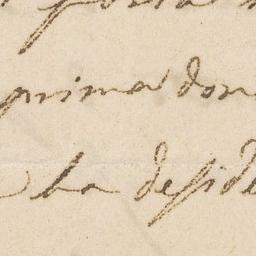 prima don
ha deside